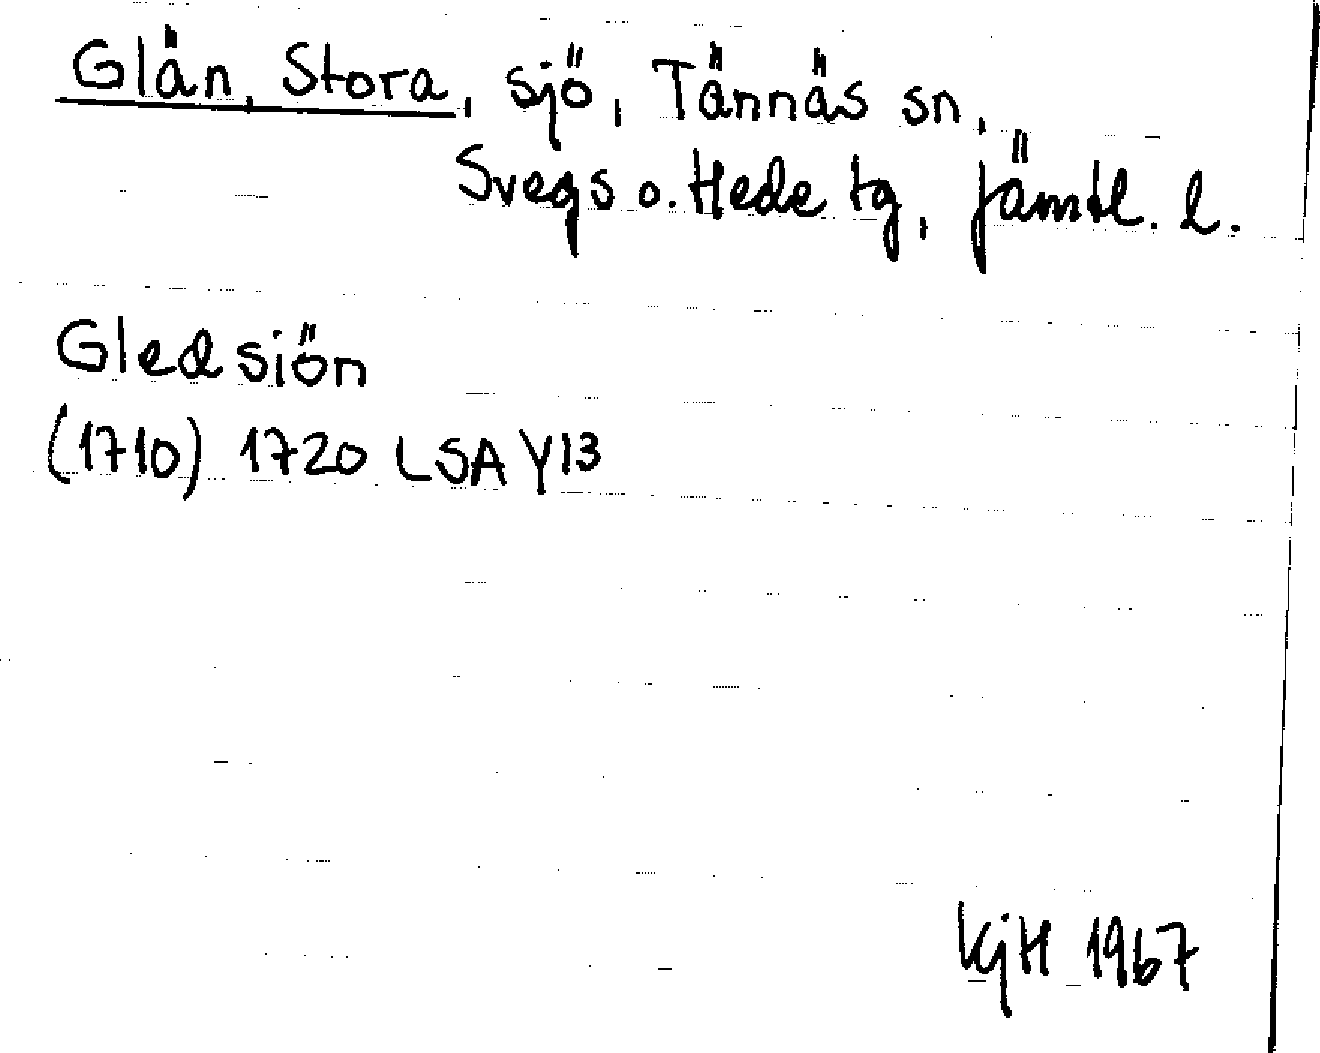 Glän, Stora, sjö, Tännäs sn,
Svegs o. Hede tg, Jämtl. l.
Gledsiön
(1710) 1720 LSA Y13
KjH 1967